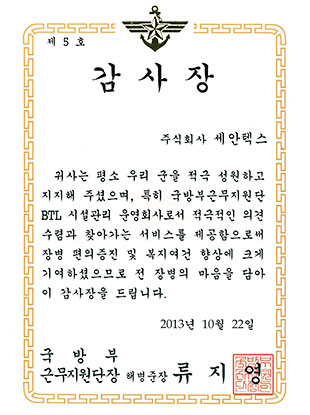 제 5 호
감 사 장
주식회사 세안텍스
귀사는 평소 우리 군을 적극 성원하고
지지해 주셨으며, 특히 국방부근무지원단
BTL 시설관리 운영회사로서 적극적인 의견
수렴과 찾아가는 서비스를 제공함으로써
장병 편의증진 및 복지여건 향상에 크게
기여하셨으므로 전 장병의 마음을 담아
이 감사장을 드립니다.
2013년 10월 22일
국 방 부
근무지원단장 해병준장 류 지 영